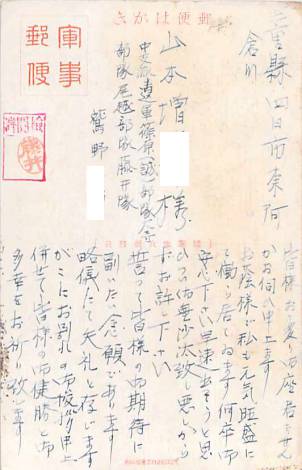 郵便はがき
軍事
郵便
三重縣四日市東阿
倉川
山本増
様
中支派遣軍篠原(誠)部隊
部隊尾越部隊藤井隊
鷲野
皆様お変り御座居ませんか
お伺ひ申上ます
お蔭様で私も元気旺盛に
働ら居て居ります何卒御
安心下さい早速出そうと思
ひつつ御無沙汰致し悪しから
ずお許し下さい
誓って皆様の御期待に
副いたい念願であります
略儀にて失礼と存じます
がここにお別れの御挨拶申上
併せて皆様の御健勝と御
多幸をお祈り致します